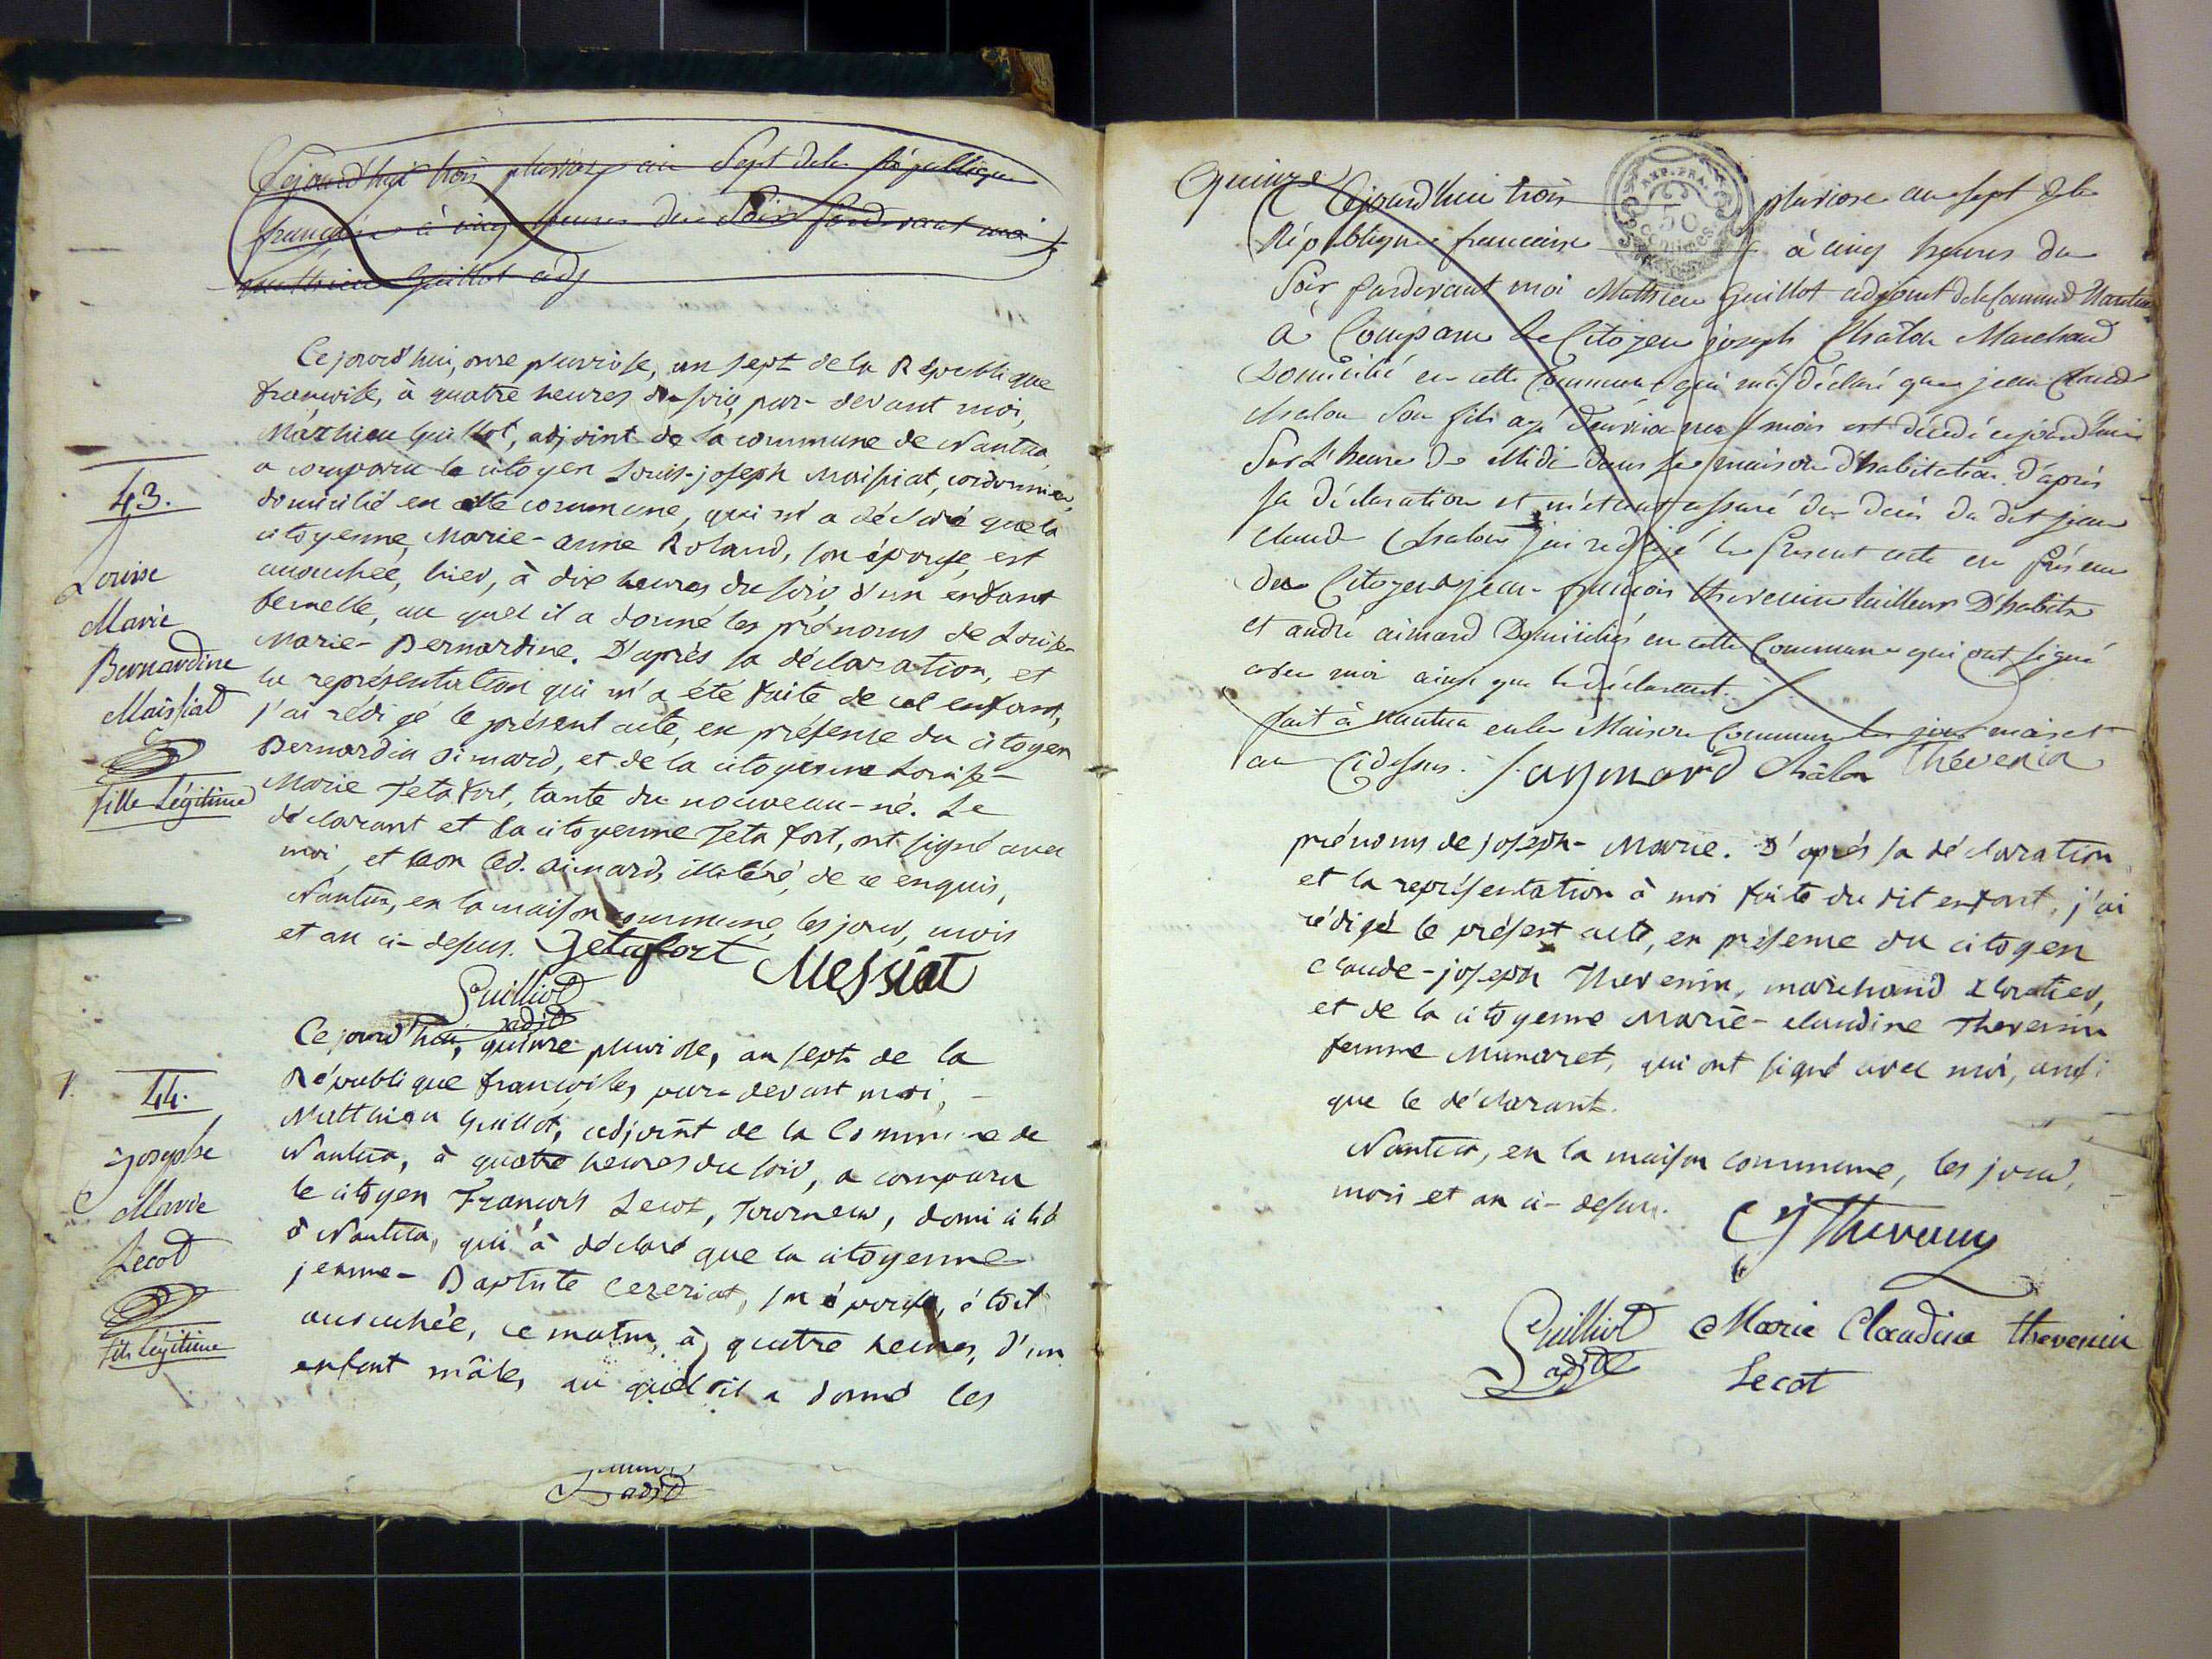 Cejourd'hui trois pluviose an Sept de la République
française à cinq heures du Soir pardevant moi
matthieu Guillot adj
Ce jourd'hui, onze pluviose, an sept de la République
françoise, à quatre heures du soir, par-devant moi,
Mathieu Guillot, adjoint de la commune de Nantua,
a comparu le citoyen Louis-joseph Maissiat, cordonnier,
domicilié en cette commune, qui m'a déclaré que la
citoyenne, Marie-anne Roland, son épouse, est
accouchée, hier, à dix heures du soir, d'un enfant
femelle, au quel il a donné les prénoms de Louise-
Marie-Bernardine. D'après sa déclaration, et
la représentation qui m'a été faite de cet enfant,
j'ai rédigé le présent acte, en présence du citoyen
Bernardin Aimard, et de la citoyenne Louise-
Marie Jetafort, tante du nouveau-né. Le
déclarant et la citoyenne Jetafort, ont signé avec
moi, et non led. aimard, illitéré, de ce enquis,
Nantua, en la maison commune, les jour, mois
et an ci-dessus. Jetafort Messiat
Guilliot
adjt
43.
Louise
Marie
Bernardine
Maissiat
fille Légitime
Ce jourd'hui, quinze pluviose, an sept de la
République françoise, par-devant moi,
Matthieu Guillot, adjoint de la Commune de
Nantua, à quatre heures du soir, a comparu
le citoyen François Lecot, Tourneur, domicilié
à Nantua, qui a déclaré que la citoyenne
jeanne-Baptiste Cezeriat, son épouse, étoit
accouchée, ce matin, à quatre heures, d'un
enfant mâle, au quel il a donné les
1.
44.
Josephe
Marie
Lecot
fils légitime
adjt
Quinze
Cejourd'hui trois pluviose an sept de la
REP. FRA.
50
centimes
République francaise à cinq heures du
Soir, pardevant moi Matthieu Guillot adjoint de la Commune Nantua
à Comparu le Citoyen joseph Châlon Marchand
Domicilié en cette Commune qui m'a déclaré que jean Claude
chalon Son fils agé d'environ neuf mois est décédé cejourd'hui
Sur L'heure de Midi dans sa maison d'habitation. D'après
sa déclaration et m'étant assuré du décès du dit jean
Claude Chalon j'ai redigé le présent acte en présence
des Citoyens jean-françois thevenin tailleur D'habits
et andré aimard Domiciliés en cette Commune qui ont signé
avec moi ainsi que le déclarant.
fait à Nantua en la Maison Commune les jour mois et
an Cidessus. aymard Châlon Thevenin
prénoms de joseph-Marie. D'après sa déclaration
et la représentation à moi faite du dit enfant, j'ai
rédigé le présent acte, en présence du citoyen
claude-joseph Thevenin, marchand
et de la citoyenne Marie-claudine Thevenin
femme Munaret, qui ont signé avec moi, ainsi
que le déclarant.
Nantua, en la maison commune, les jour,
mois et an ci-dessus.
Cj Thevenin
Guilliot Marie Claudine thevenin
adjt Lecot